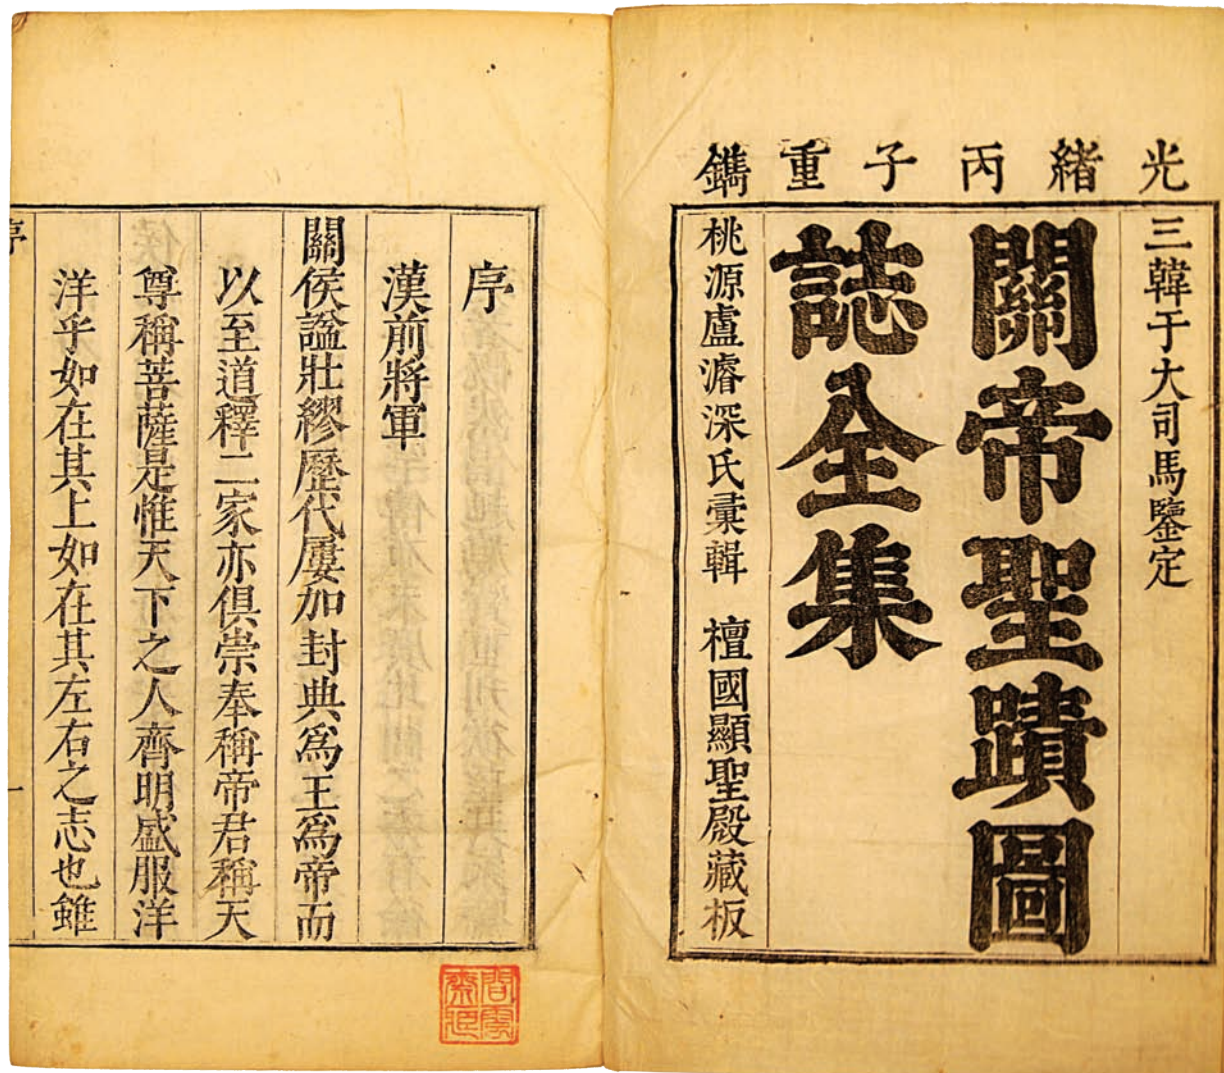 光緒丙子重鐫
三韓于大司馬鑒定
關帝聖蹟圖
誌全集
桃源盧濬深氏彙輯 檀國顯聖殿藏板
序
漢前將軍
關侯諡壯繆歷代屢加封典爲王爲帝而
以至道釋二家亦俱崇奉稱帝君稱天
尊稱菩薩是惟天下之人齊明盛服洋
洋乎如在其上如在其左右之志也雖
序
一